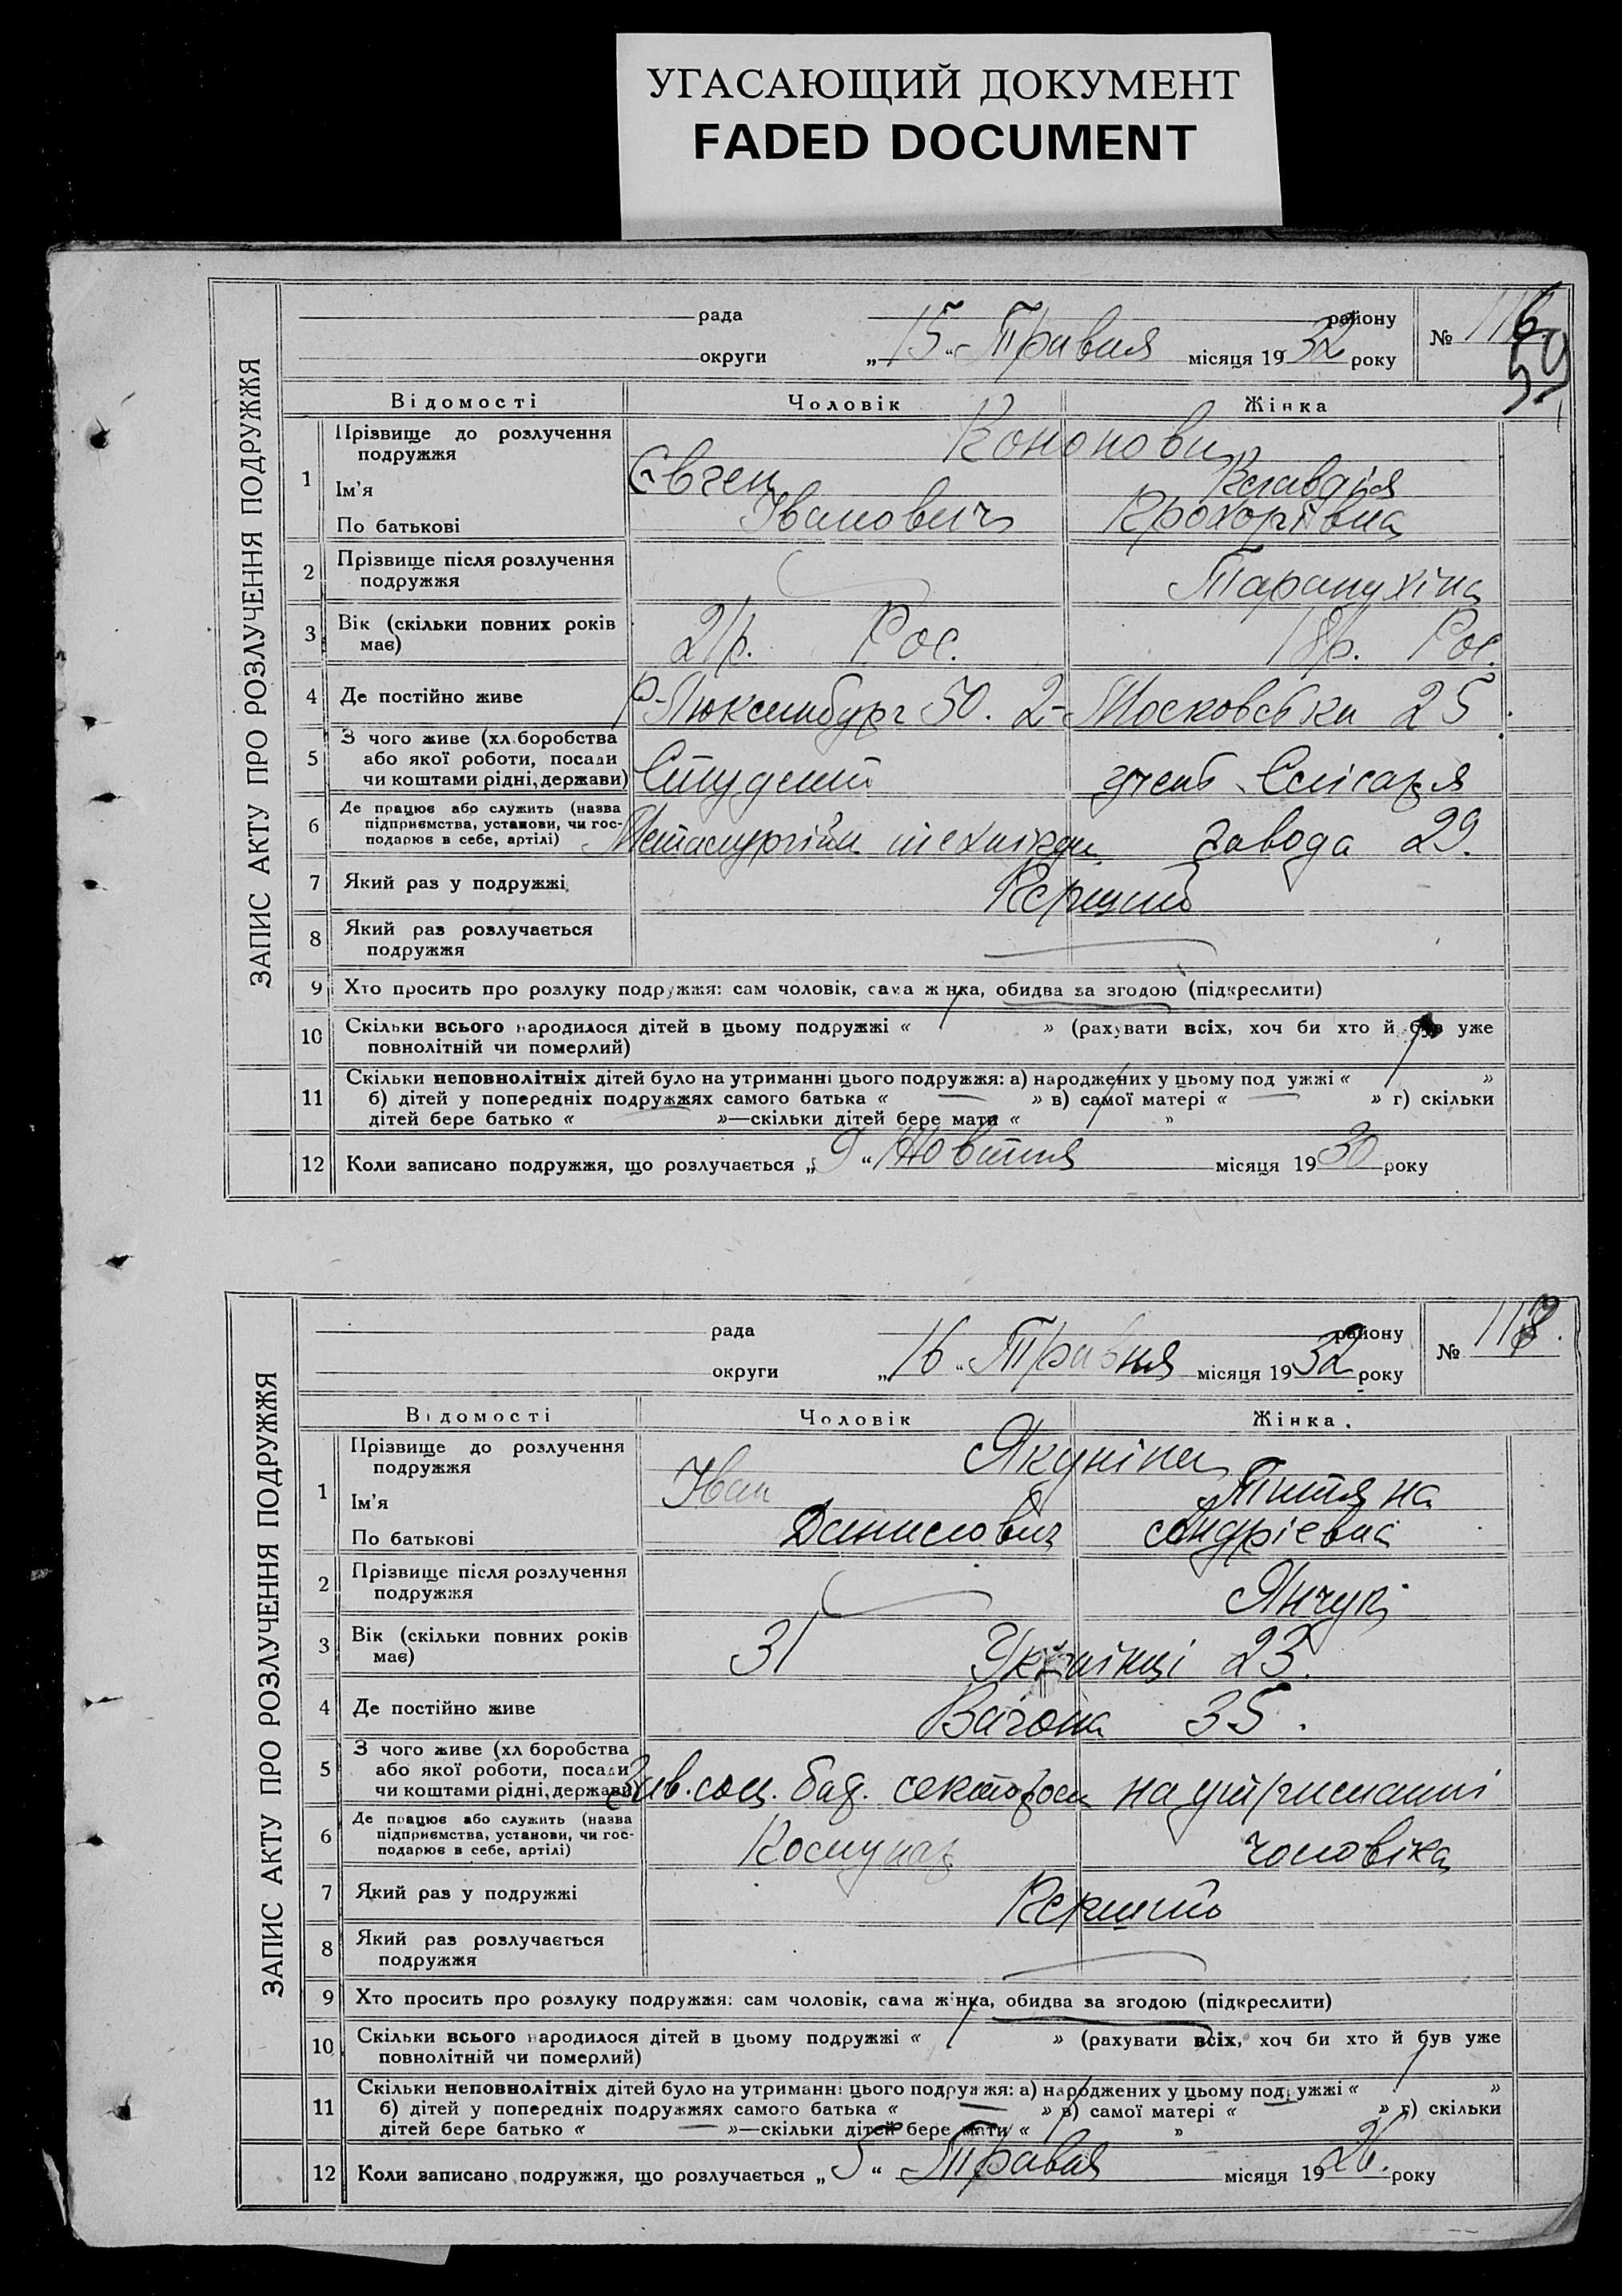 УГАСАЮЩИЙ ДОКУМЕНТ
FADED DOCUMENT
ЗАПИС АКТУ ПРО РОЗЛУЧЕННЯ ПОДРУЖЖЯ
рада району
округи „15“ Травня місяця 1932 року
№ 116
59
Відомості Чоловік Жінка
1 Прізвище до розлучення подружжя Кононови
Ім'я Євген Клавдія
По батькові Іванович Прохорівна
2 Прізвище після розлучення
подружжя Тарапухіна
3 Вік (скільки повних років
має) 21р. Рос. 18р. Рос.
4 Де постійно живе Р-Люксембург 50. 2-Московська 25.
5 З чого живе (хл.боробства
або якої роботи, посади
чи коштами рідні, держави) Студент учень Слісаря
6 Де працює або служить (назва
підприємства, установи, чи гос-
подарює в себе, артілі) Металургійн технікум завода 29.
7 Який раз у подружжі Перший
8 Який раз розлучається
подружжя
9 Хто просить про розлуку подружжя: сам чоловік, сама жінка, обидва за згодою (підкреслити)
10 Скільки всього народилося дітей в цьому подружжі « » (рахувати всіх, хоч би хто й був уже
повнолітній чи померлий)
11 Скільки неповнолітніх дітей було на утриманні цього подружжя: а) народжених у цьому под ужжі « »
б) дітей у попередніх подружжях самого батька « — » в) самої матері « — » г) скільки
дітей бере батько « »—скільки дітей бере мати « »
12 Коли записано подружжя, що розлучається „9“ Жовтня місяця 1930 року
ЗАПИС АКТУ ПРО РОЗЛУЧЕННЯ ПОДРУЖЖЯ
рада району
округи „16“ Травня місяця 1932 року
№ 118.
Відомості Чоловік Жінка.
1 Прізвище до розлучення
подружжя Якуніни
Ім'я Іван Тіття на
По батькові Данилович Андріевна
2 Прізвище після розлучення
подружжя Янчук
3 Вік (скільки повних років
має) 31 Українці 23.
4 Де постійно живе Вагона 35.
5 З чого живе (хл боробства
або якої роботи, посади
чи коштами рідні, держави) Зав. соц. баз. сектором на утриманні
6 Де працює або служить (назва
підприємства, установи, чи гос-
подарює в себе, артілі) Комунар чоловіка
7 Який раз у подружжі Перший
8 Який раз розлучається
подружжя
9 Хто просить про розлуку подружжя: сам чоловік, сама жінка, обидва за згодою (підкреслити)
10 Скільки всього народилося дітей в цьому подружжі « » (рахувати всіх, хоч би хто й був уже
повнолітній чи померлий)
11 Скільки неповнолітніх дітей було на утриманні цього подружжя: а) народжених у цьому подружжі « »
б) дітей у попередніх подружжях самого батька « — » в) самої матері « — » г) скільки
дітей бере батько « — »—скільки дітей бере мати « »
12 Коли записано подружжя, що розлучається „5“ Травня місяця 1926. року